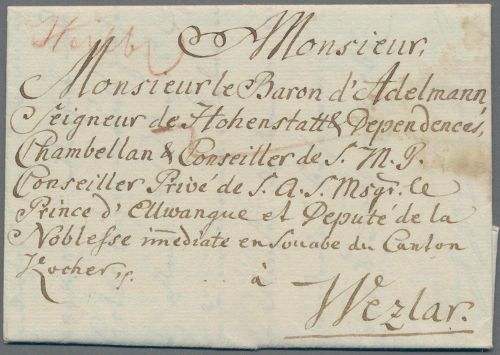 Monsieur,
Monsieur le Baron d'Adelmann,
Seigneur de Hohenstatt & Dependences,
Chambellan & Conseiller de S. M. J.
Conseiller Privé de S. A. S. Msgr. le
Prince d'Ellwangue et Deputé de la
Noblesse imediate en Souabe du Canton
Kocher,
à
Wezlar.